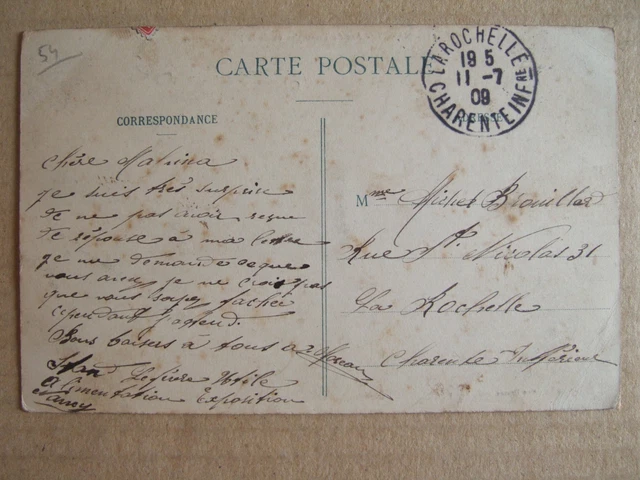 54
CARTE POSTALE
LA ROCHELLE
19 5
11 -7
09
CHARENTE INFRE
CORRESPONDANCE
Chère
je suis très surprise
de ne pas avoir reçue
de réponse à ma lettre
je me demande ce que
vous avez je ne crois pas
que vous soyez fachée
cependant j'attend.
Bons baisers à tous
Stand Lefèvre Utile
Alimentation Exposition
Nancy
Mme Michel Brouillard
Rue St Nicolas 31
La Rochelle
Charente Inférieure